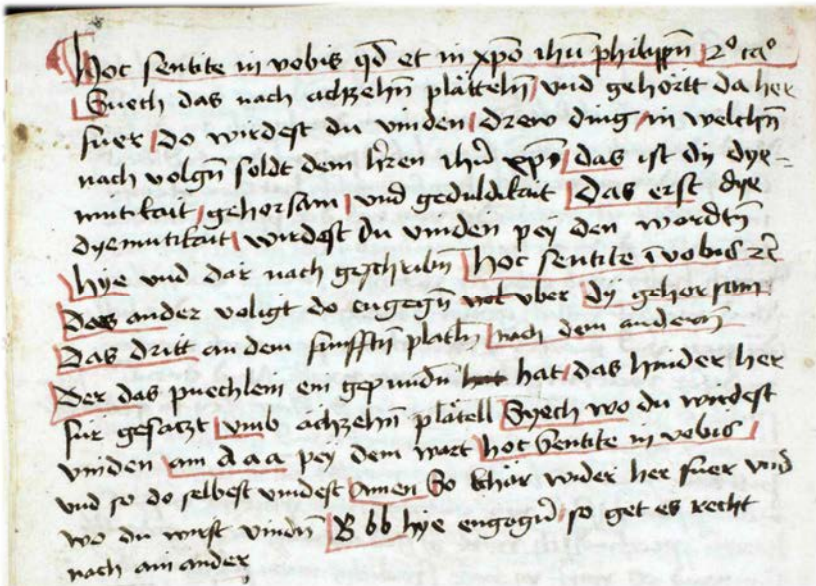 Hoc sentite in vobis qd et in xpo ihu philippn 2º caº
Suech das nach achzehn plätteln und gehortt da her
fuer do wirdest du vinden drew ding in welchn
nach volgn soldt dem hren ihu xpo das ist dy dye-
mutikait gehorsam und geduldikait Das erst dye
dyemutikait wirdest du vinden pey den wordtn
hye und dar nach geschribn hoc sentite i vobis zc
Das ander voligt do engegn vbar dy gehorsam
Das dritt an dem funfftn platl nach dem andern
Der das puechlein ein gepundn hat das hinder her
für gesatzt vmb achzehn plätell Syech wo du wirdest
vinden am Aaa pey dem wart hoc Sentite in vobis
vnd so do selbest vindest Amen So khar wider her fuer vnd
wo du wirst vindn B bb hye engogn so get es recht
nach ain ander